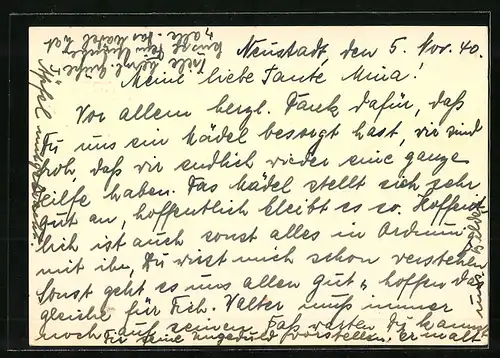 Neustadt, den 5. Nov. 40.
Meine liebe Tante Mina!
Vor allem herzl. Dank dafür, daß
Du uns ein Mädel besorgt hast, wir sind
froh, daß wir endlich wieder eine ganze
Hilfe haben. Das Mädel stellt sich sehr
gut an, hoffentlich bleibt es so. Hoffent
lich ist auch sonst alles in Ordnung
mit ihr, Du wirst mich schon verstehen
Sonst geht es uns allen gut, hoffen das
gleiche für Dich. Walter muß immer
noch auf seinen Paß warten. Du kannst
Dir seine Ungeduld vorstellen, er malt
Äpfel
viele herzl. Grüße
alle. Das Mädel hat